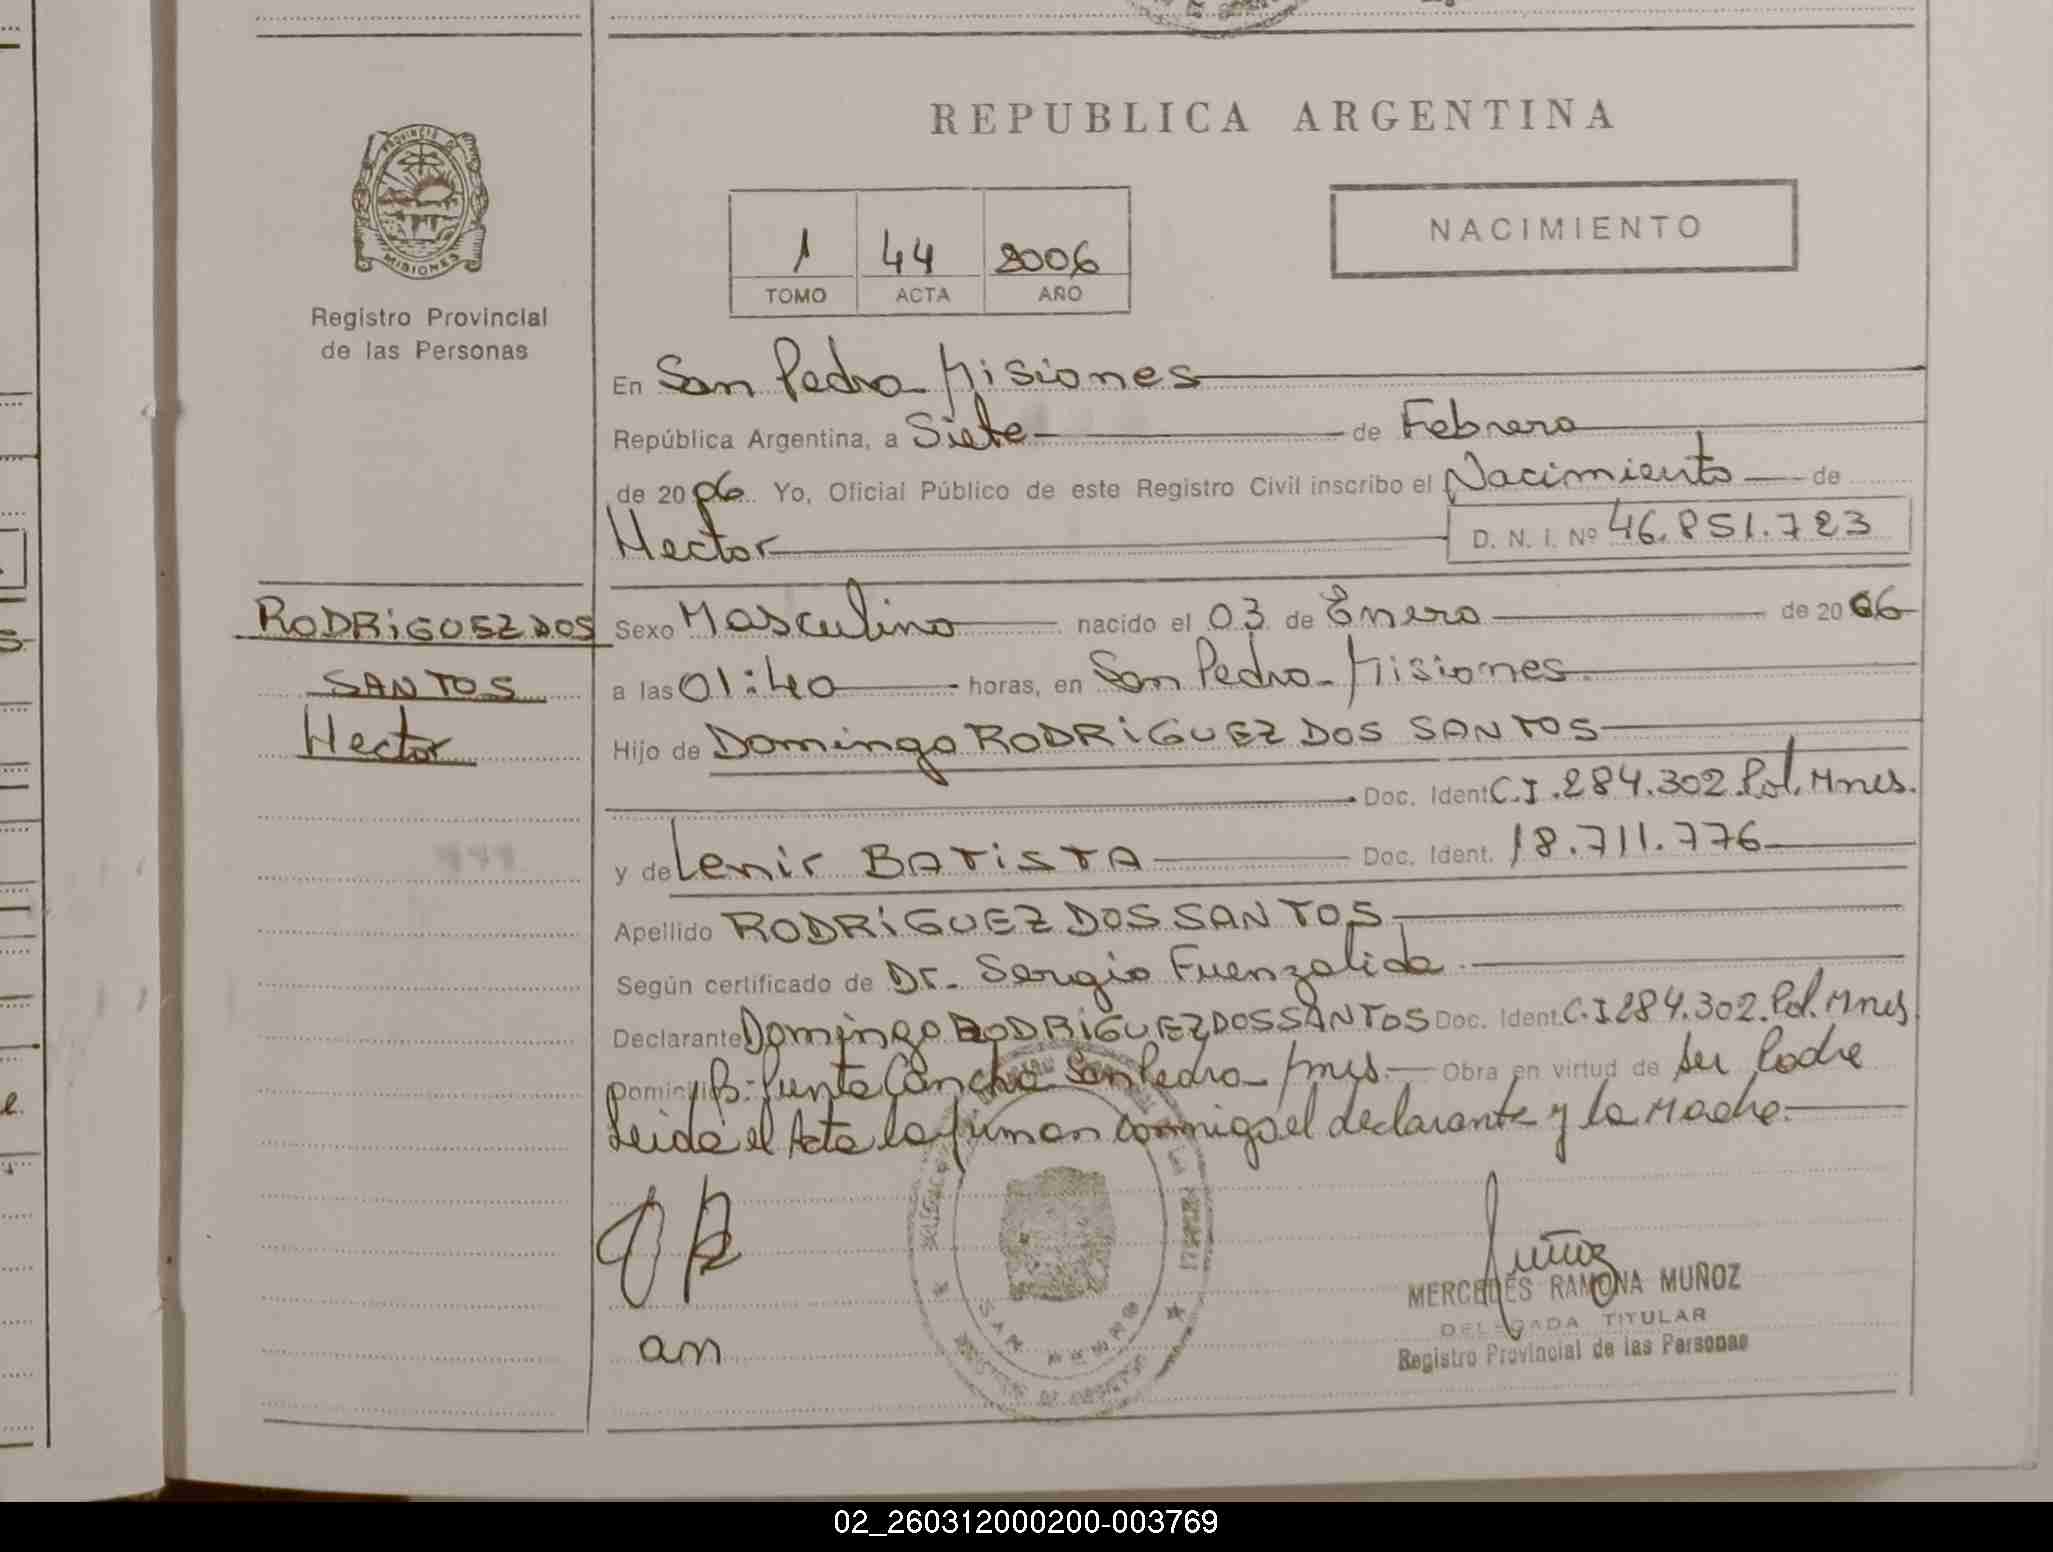 REPUBLICA ARGENTINA
PROVINCIA DE
MISIONES
Registro Provincial
de las Personas
NACIMIENTO
1 44 2006
TOMO ACTA AÑO
En San Pedro - Misiones
República Argentina, a Siete de Febrero
de 2006 Yo, Oficial Público de este Registro Civil inscribo el Nacimiento de
Hector D. N. I. Nº 46.851.723
RODRiGUEZ DOS
SANTOS
Hector
Sexo Masculino nacido el 03 de Enero de 2006
a las 01:40 horas, en San Pedro - Misiones.
Hijo de Domingo RODRiGUEZ DOS SANTOS
Doc. Ident. C.I. 284.302. Pol. Mnes.
y de Lenir BATiSTA Doc. Ident. 18.711.776
Apellido RODRiGUEZ DOS SANTOS
Según certificado de Dr. Sergio Fuenzalida.
Declarante Domingo RODRiGUEZ DOS SANTOS Doc. Ident. C.I. 284.302. Pol. Mnes
Domicilio B: Punta Cancha San Pedro - Mnes. Obra en virtud de ser Padre
Leida el Acta la firman conmigo el declarante y la Madre.
an
Muñoz
MERCEDES RAMONA MUÑOZ
DELEGADA TITULAR
Registro Provincial de las Personas
SAN PEDRO
02_260312000200-003769